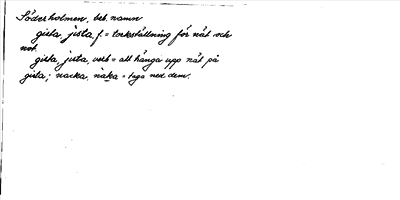 Söderholmen, beb. namn
gista, jista, f. = torkställning för nät och
not.
gista, jista, verb = att hänga upp nät på
gista; nacka, näka = taga ned dem.